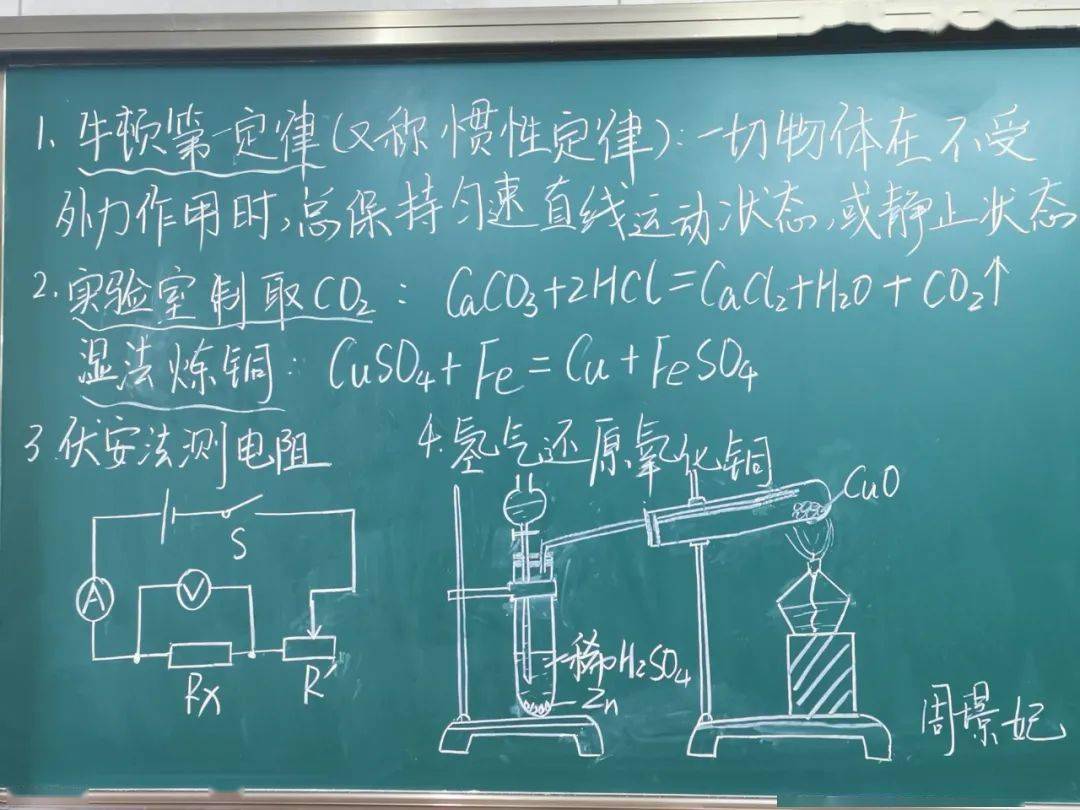 1. 牛顿第一定律(又称惯性定律):一切物体在不受
外力作用时,总保持匀速直线运动状态,或静止状态
2. 实验室制取CO₂: CaCO₃+2HCl=CaCl₂+H₂O+CO₂↑
湿法炼铜: CuSO₄+Fe=Cu+FeSO₄
3.伏安法测电阻
4.氢气还原氧化铜
CuO
S
A
V
Rx
R'
稀H₂SO₄
Zn
周璟妃